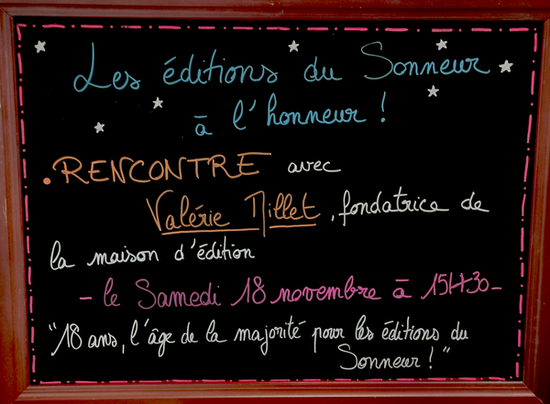 Les éditions du Sonneur
à l'honneur !
. RENCONTRE avec
Valérie Millet, fondatrice de
la maison d'édition
- le Samedi 18 novembre à 15H30 -
"18 ans, l'âge de la majorité pour les éditions du
Sonneur ! "